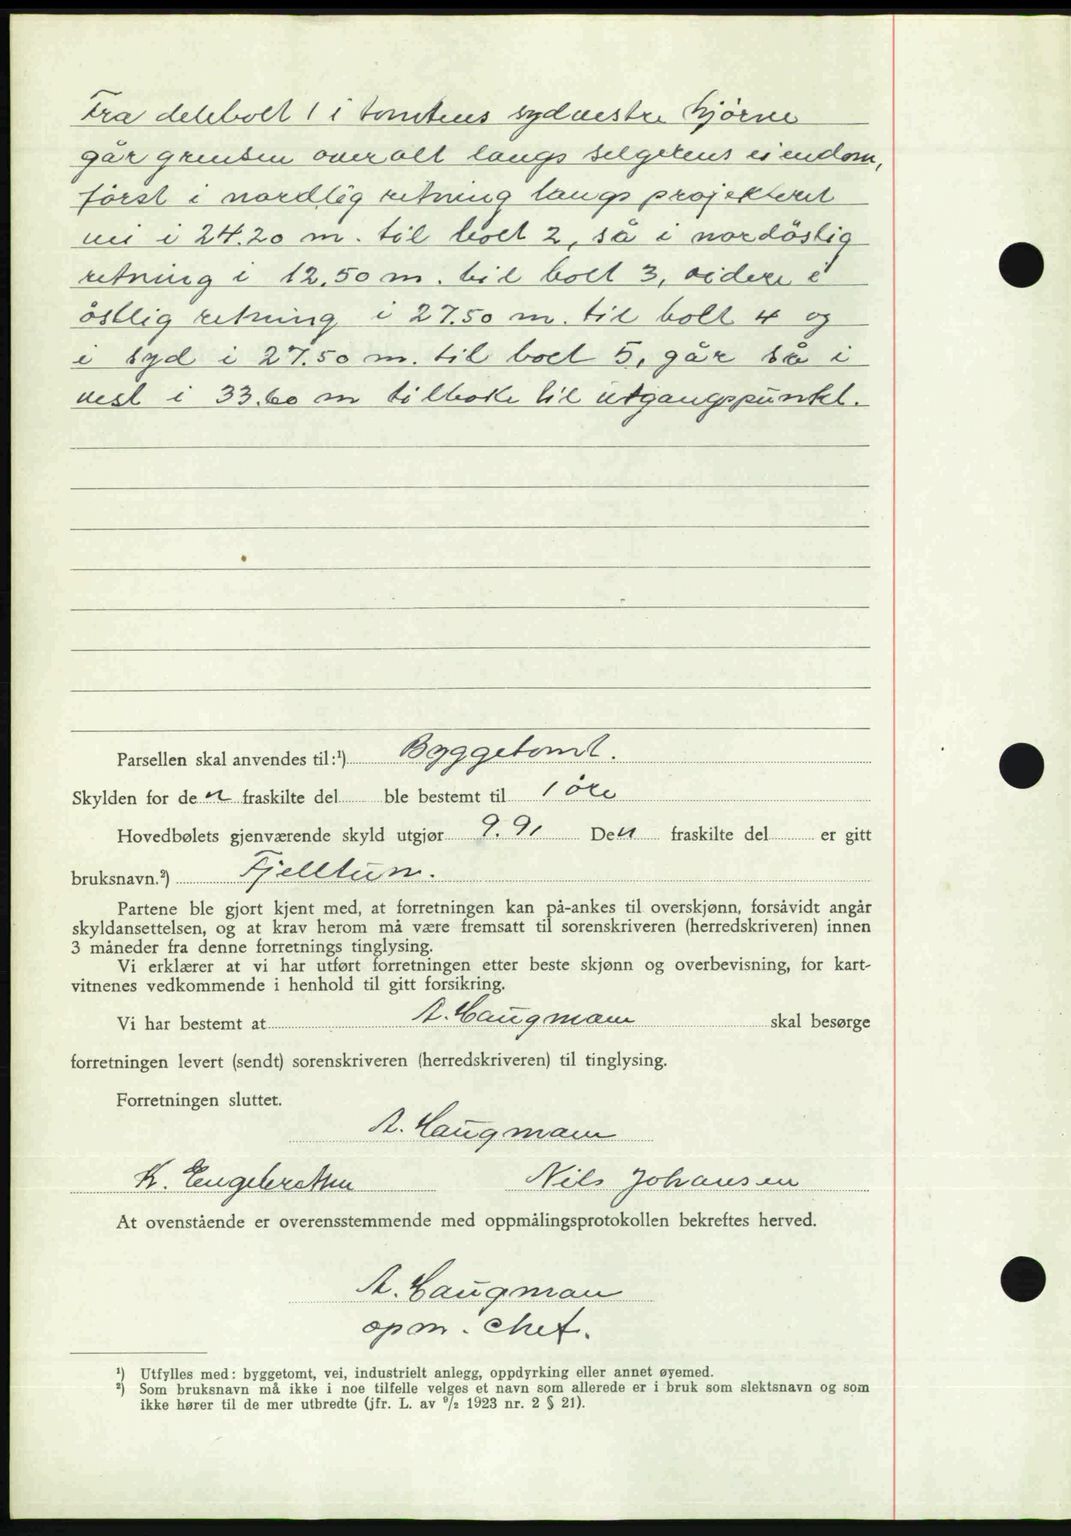 Fra delebolt 1 i tomtens sydvestre hjørne
går grensen overalt langs selgerens eiendom,
først i nordlig retning langs projektert
vei i 24.20 m. til bolt 2, så i nordöstlig
retning i 12.50 m. til bolt 3, videre i
östlig retning i 27.50 m. til bolt 4 og
i syd i 27.50 m. til bolt 5, går så i
vest i 33.60 m tilbake til utgangspunkt.
Parsellen skal anvendes til:¹) Byggetomt.
Skylden for den fraskilte del ble bestemt til 1 öre
Hovedbølets gjenværende skyld utgjør 9.91 Den fraskilte del er gitt
bruksnavn.²) Fjelltun.
Partene ble gjort kjent med, at forretningen kan på-ankes til overskjønn, forsåvidt angår
skyldansettelsen, og at krav herom må være fremsatt til sorenskriveren (herredskriveren) innen
3 måneder fra denne forretnings tinglysing.
Vi erklærer at vi har utført forretningen etter beste skjønn og overbevisning, for kart-
vitnenes vedkommende i henhold til gitt forsikring.
Vi har bestemt at A. Haugmann skal besørge
forretningen levert (sendt) sorenskriveren (herredskriveren) til tinglysing.
Forretningen sluttet.
A. Haugmann
K. Engebretsen Nils Johansen
At ovenstående er overensstemmende med oppmålingsprotokollen bekreftes herved.
A. Haugman
opm. chef.
¹) Utfylles med: byggetomt, vei, industrielt anlegg, oppdyrking eller annet øyemed.
²) Som bruksnavn må ikke i noe tilfelle velges et navn som allerede er i bruk som slektsnavn og som
ikke hører til de mer utbredte (jfr. L. av ⁹/₂ 1923 nr. 2 § 21).